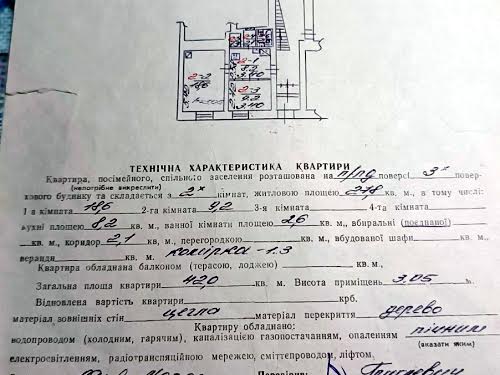 2-2
18,6
2-1
8,2
3.40
2-3
9.2
3.40
ТЕХНІЧНА ХАРАКТЕРИСТИКА КВАРТИРИ
Квартира, посімейного, спільного заселення розташована на п/пд поверсі 3х повер-
(непотрібне викреслити)
хового будинку та складається з 2х кімнат, житловою площею 27,8 кв. м., в тому числі:
1-а кімната 18,6 2-га кімната 9,2 3-я кімната 4-та кімната
кухні площею 8,2 кв. м., ванної кімнати площею 2,6 кв. м., вбиральні (поєднаної)
кв. м., коридор 2,1 кв, м., перегородкою кв. м., вбудованої шафи кв. м.,
веранди кв. м. комірка - 1.3
Квартира обладнана балконом (терасою, лоджею) кв. м.,
Загальна площа квартири 42,0 кв. м. Висота приміщень 3.05 м.
Відновлена вартість квартири крб.
матеріал зовнішніх стін цегла матеріал перекриття дерево
Квартиру обладнано: пічним
водопроводом (холодним, гарячим), каналізацією газопостачанням, опаленням
(вказати яким)
електросвітленням, радіотрансляційною мережею, сміттепроводом, ліфтом,